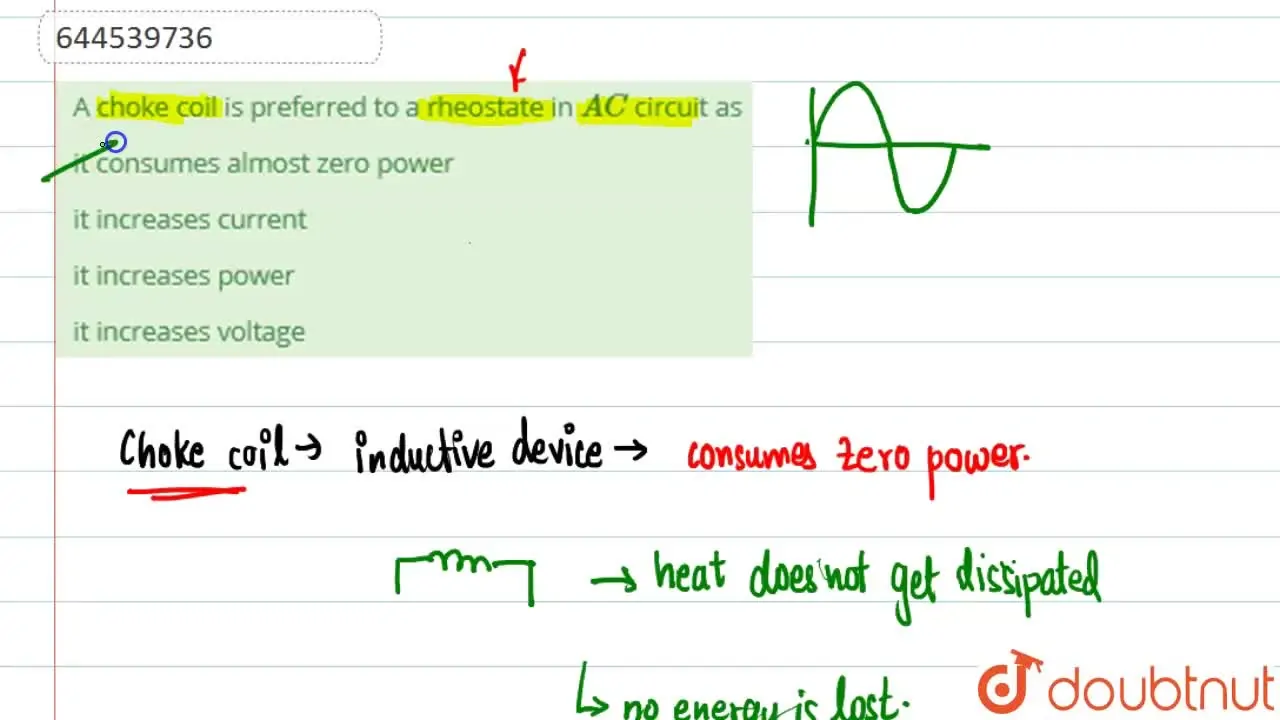 644539736
A choke coil is preferred to a rheostate in AC circuit as
it consumes almost zero power
it increases current
it increases power
it increases voltage
Choke coil → inductive device → consumes zero power.
→ heat does not get dissipated
↳ no energy is lost.
doubtnut